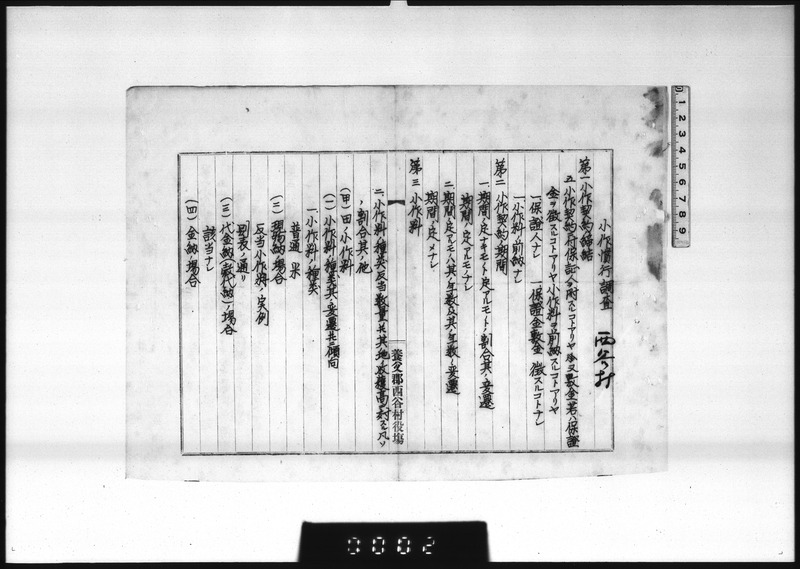 小作慣行調査 西谷村
第一 小作契約締結
五、小作契約ニ付保証人ヲ附スルコトアリヤ又敷金若ハ保證
金ヲ徴スルコトアリヤ小作料ヲ前納スルコトアリヤ
一 保證人ナシ 一 保證金敷金 徴スルコトナシ
一 小作料ノ前納ナシ
第二 小作契約ノ期間
一、期間ノ定ナキモノト定アルモノトノ割合其ノ変遷
期間ノ定アルモノナシ
二、期間ノ定アルモノハ其ノ年数及其ノ年数ノ変遷
期間ノ定メナシ
第三 小作料
二、小作料ノ種類反当数量共其地ノ収穫高ニ対スル凡ソ
ノ割合其ノ他
(甲)田ノ小作料
(一)小作料ノ種類其ノ変遷共ニ傾向
一、小作料ノ種類
普通 米
(二)現物納ノ場合
反当小作料ノ実例
別表ノ通リ
(三)代金納(穀代納)ノ場合
該当ナシ
(四)金納ノ場合
養父郡西谷村役場
0 1 2 3 4 5 6 7 8 9
0002